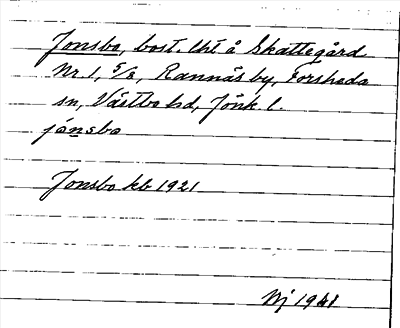 Jonsbo, bost. lht å Skattegård
Nr 1, 5/8, Rannäs by, Forsheda
sn, Västbo hd, Jönk. l.
jónsbo
Jonsbo kb 1921
Nj 1941